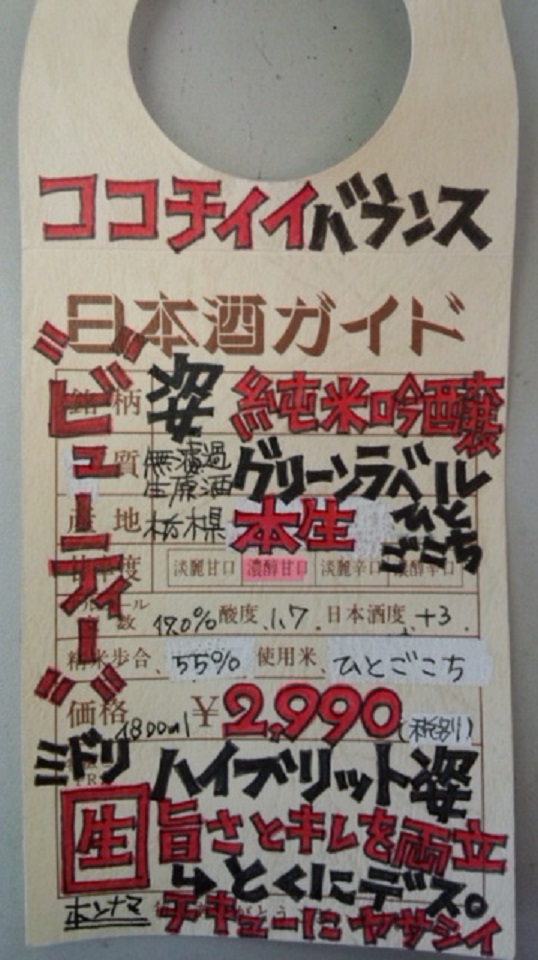 ココチイイバランス
日本酒ガイド
"ビューティー"
銘柄 姿 純米吟醸
質 無濾過生原酒 グリーンラベル
産地 栃木県 本生 ひとごこち
淡麗甘口 濃醇甘口 淡麗辛口 濃醇辛口
数 17.0% 酸度 1.7 日本酒度 +3
精米歩合 55% 使用米 ひとごこち
価格 1800ml ¥2,990 (税別)
ミドリ ハイブリット姿
生 旨さとキレを両立
↳とくにデス。
本ンナマ チキューにヤサシイ